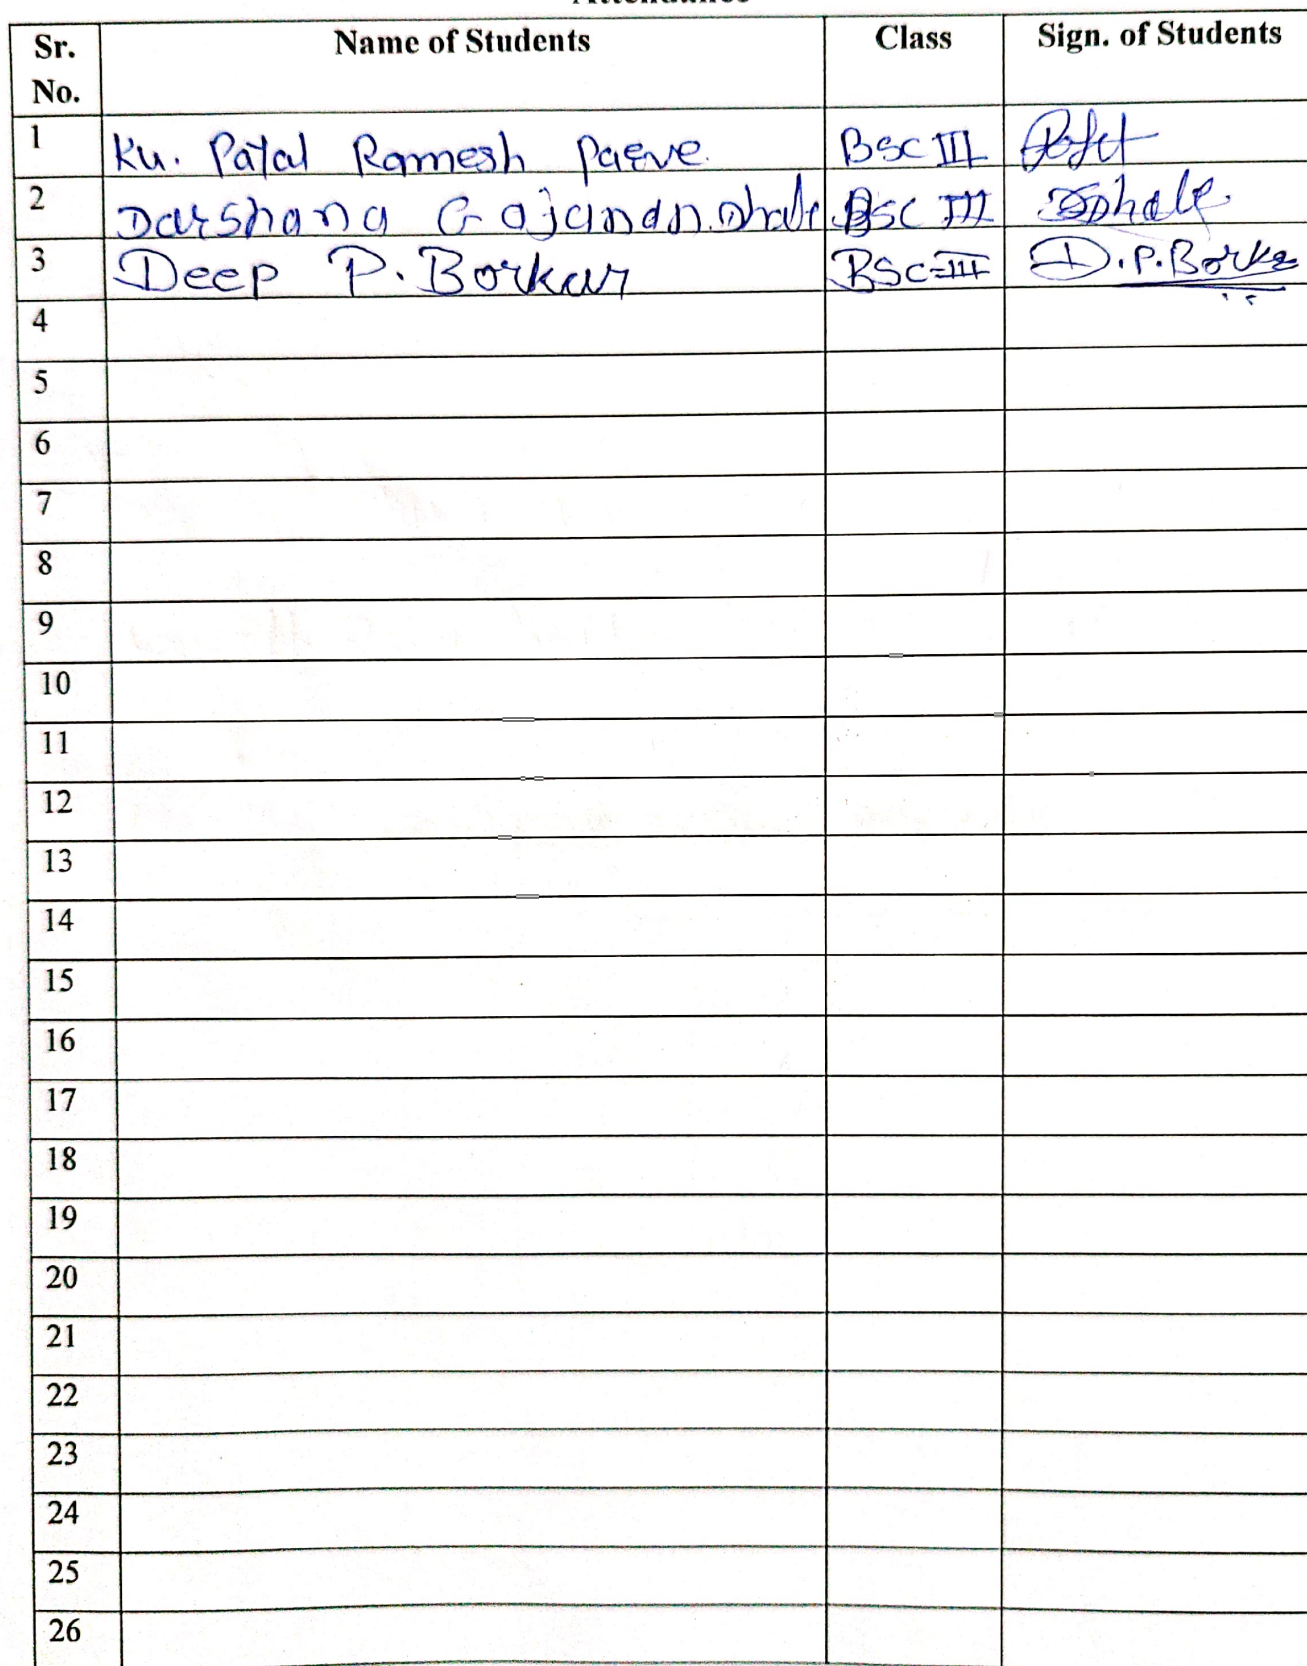 Attendance
Sr. No. Name of Students Class Sign. of Students
1 Ku. Payal Ramesh BSC III
2 Darshana Gajanan Dhale BSC III Dhale.
3 Deep P. Borkar BSC-III D.P.Borkar
4
5
6
7
8
9
10
11
12
13
14
15
16
17
18
19
20
21
22
23
24
25
26